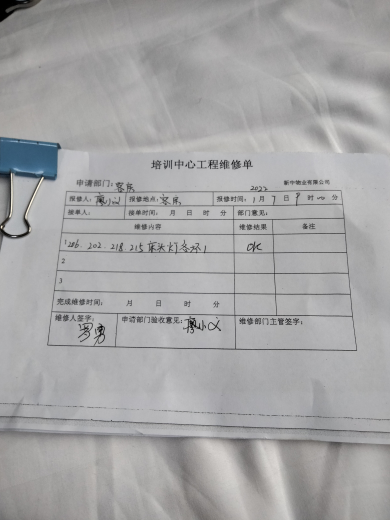 培训中心工程维修单
申请部门：客房 2022 新中物业有限公司
报修人：廖小义 报修地点：客房 报修时间：1月7日9时00分
接单人： 接单时间： 月 日 时 分 部门意见：
维修内容 维修结果 备注
1 206. 202. 218. 215 床头灯各坏1 OK
2
3
完成维修时间： 月 日 时 分
维修人签字： 申请部门验收意见：廖小义 维修部门主管签字：
罗勇